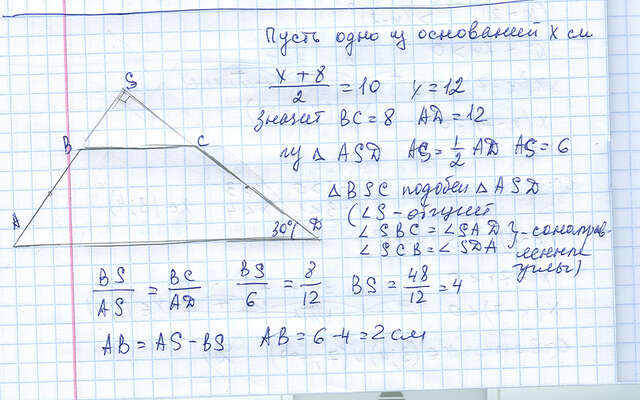 Пусть одно из оснований x см
(x + 8)/2 = 10   x = 12
Значит BC = 8   AD = 12
из △ ASD   AS = 1/2 AD   AS = 6
△ BSC подобен △ ASD
(∠S - общий
∠SBC = ∠SAD } - сонаправ-
∠SCB = ∠SDA   ленные
углы)
S
B
C
A
30°
D
BS/AS = BC/AD   BS/6 = 8/12   BS = 48/12 = 4
AB = AS - BS   AB = 6 - 4 = 2 см